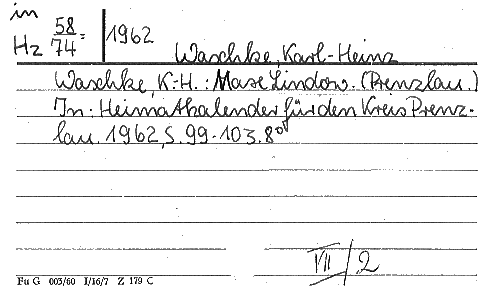 in
Hz 58/74= 1962
Waschke, Karl-Heinz
Waschke, K.-H.: Max Lindow. (Prenzlau.)
In: Heimatkalender für den Kreis Prenz-
lau. 1962, S. 99-103. 8°
VII/2
Fu G 003/60 I/16/7 Z 179 C